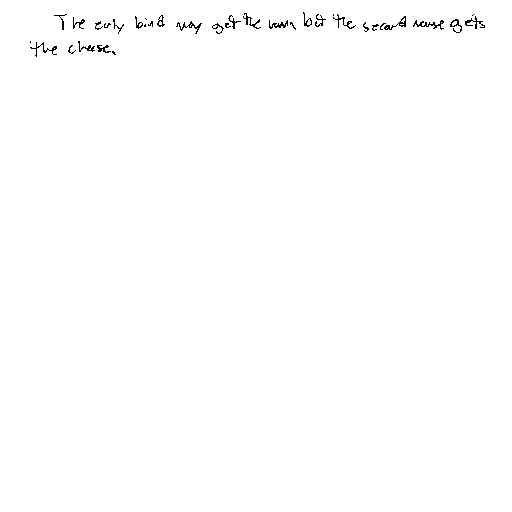 The early bird may get the worm but the second mouse gets
the cheese.